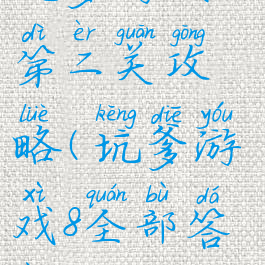 dì èr guān gōng
第二关攻
lüè kēng diē yóu
略(坑爹游
xì quán bù dá
戏8全部答